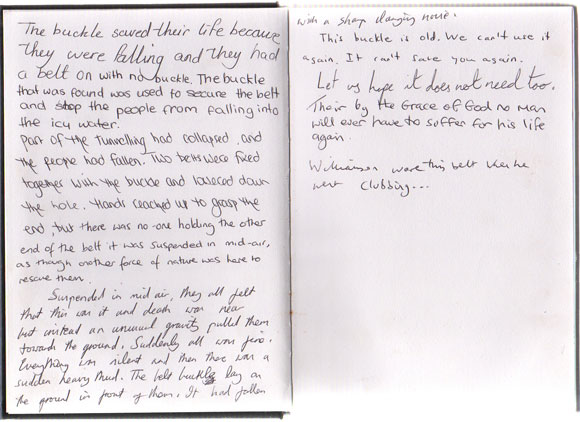 The buckle saved their life because
they were falling and they had
a belt on with no buckle. The buckle
that was found was used to secure the belt
and stop the people from falling into
the icy water.
Part of the tunnelling had collapsed and
the people had fallen. Two belts were fixed
together with the buckle and lowered down
the hole. Hands reached up to grasp the
end, but there was no-one holding the other
end of the belt it was suspended in mid-air,
as though another force of nature was here to
rescue them.
Suspended in mid air, they all felt
that this was it and death was near
but instead an unusual gravity pulled them
towards the ground. Suddenly all was fine.
Everything was silent and then there was a
sudden heavy thud. The belt buckle lay on
the ground in front of them. It had fallen
with a sharp clanging noise.
This buckle is old. We can't use it
again. It can't save you again.
Let us hope it does not need too.
Their by the Grace of God no Man
will ever have to suffer for his life
again.
Williamson wore this belt when he
went clubbing...